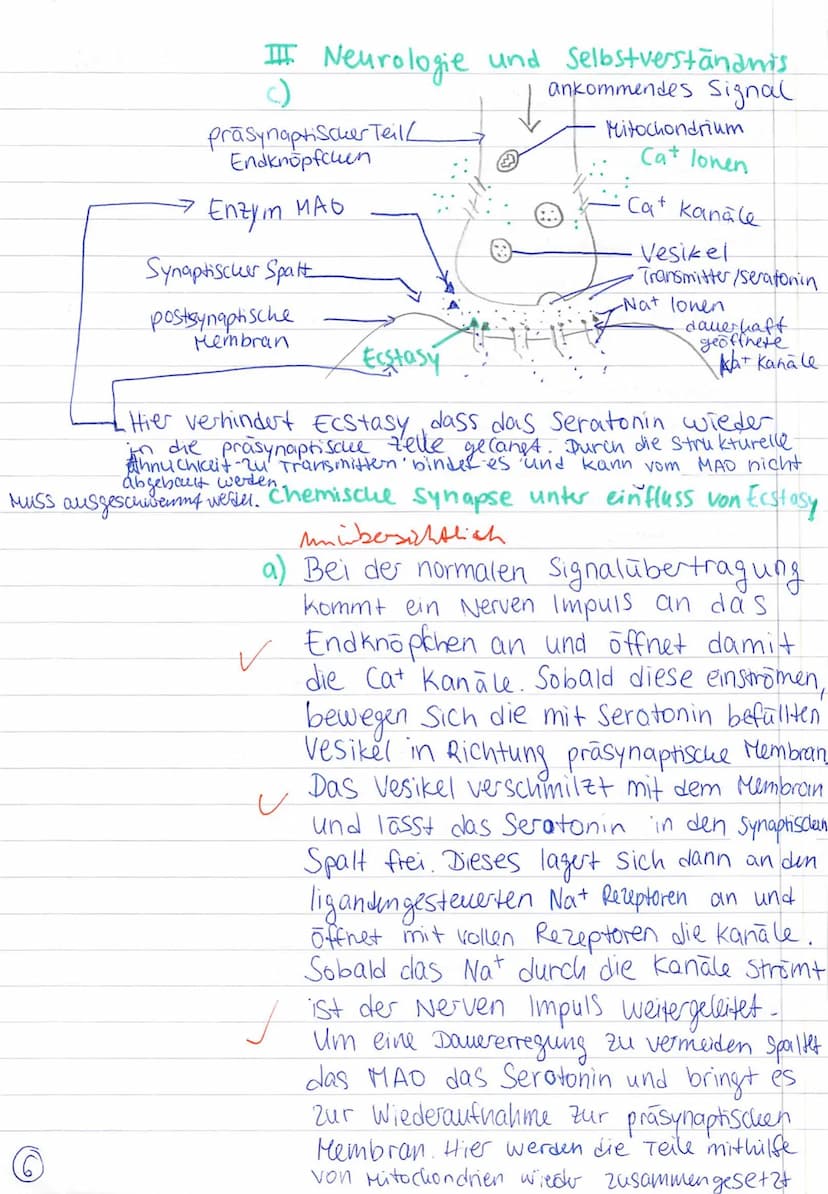 III Neurologie und Selbstverständnis
c)
ankommendes Signal
präsynaptischer Teil/
Endknöpfchen
Mitochondrium
Ca⁺ Ionen
Enzym MAO
Ca⁺ Kanäle
Vesikel
Synaptischer Spalt
Transmitter/seratonin
Na⁺ Ionen
postsynaptische
Membran
dauerhaft
geöffnete
Na⁺ Kanäle
Ecstasy
Hier verhindert Ecstasy, dass das Seratonin wieder
in die präsynaptische Zelle gelangt. Durch die strukturelle
Ähnlichkeit zu Transmittern bindet es und kann vom MAO nicht
abgebaut werden.
Muss ausgeschwemmt werden.
Chemische Synapse unter einfluss von Ecstasy
unübersichtlich
a) Bei der normalen Signalübertragung
kommt ein Nerven Impuls an das
Endknöpfchen an und öffnet damit
die Ca⁺ Kanäle. Sobald diese einströmen,
bewegen sich die mit Seratonin befüllten
Vesikel in Richtung präsynaptische Membran
Das Vesikel verschmilzt mit dem Membran
und lässt das Seratonin in den synaptischen
Spalt frei. Dieses lagert sich dann an den
ligandengesteuerten Na⁺ Rezeptoren an und
öffnet mit vollen Rezeptoren die Kanäle.
Sobald das Na⁺ durch die Kanäle strömt
ist der Nerven Impuls weitergeleitet.
Um eine Dauererregung zu vermeiden spaltet
das MAO das Serotonin und bringt es
zur Wiederaufnahme zur präsynaptischen
Membran. Hier werden die Teile mithilfe
von Mitochondrien wieder zusammengesetzt
6